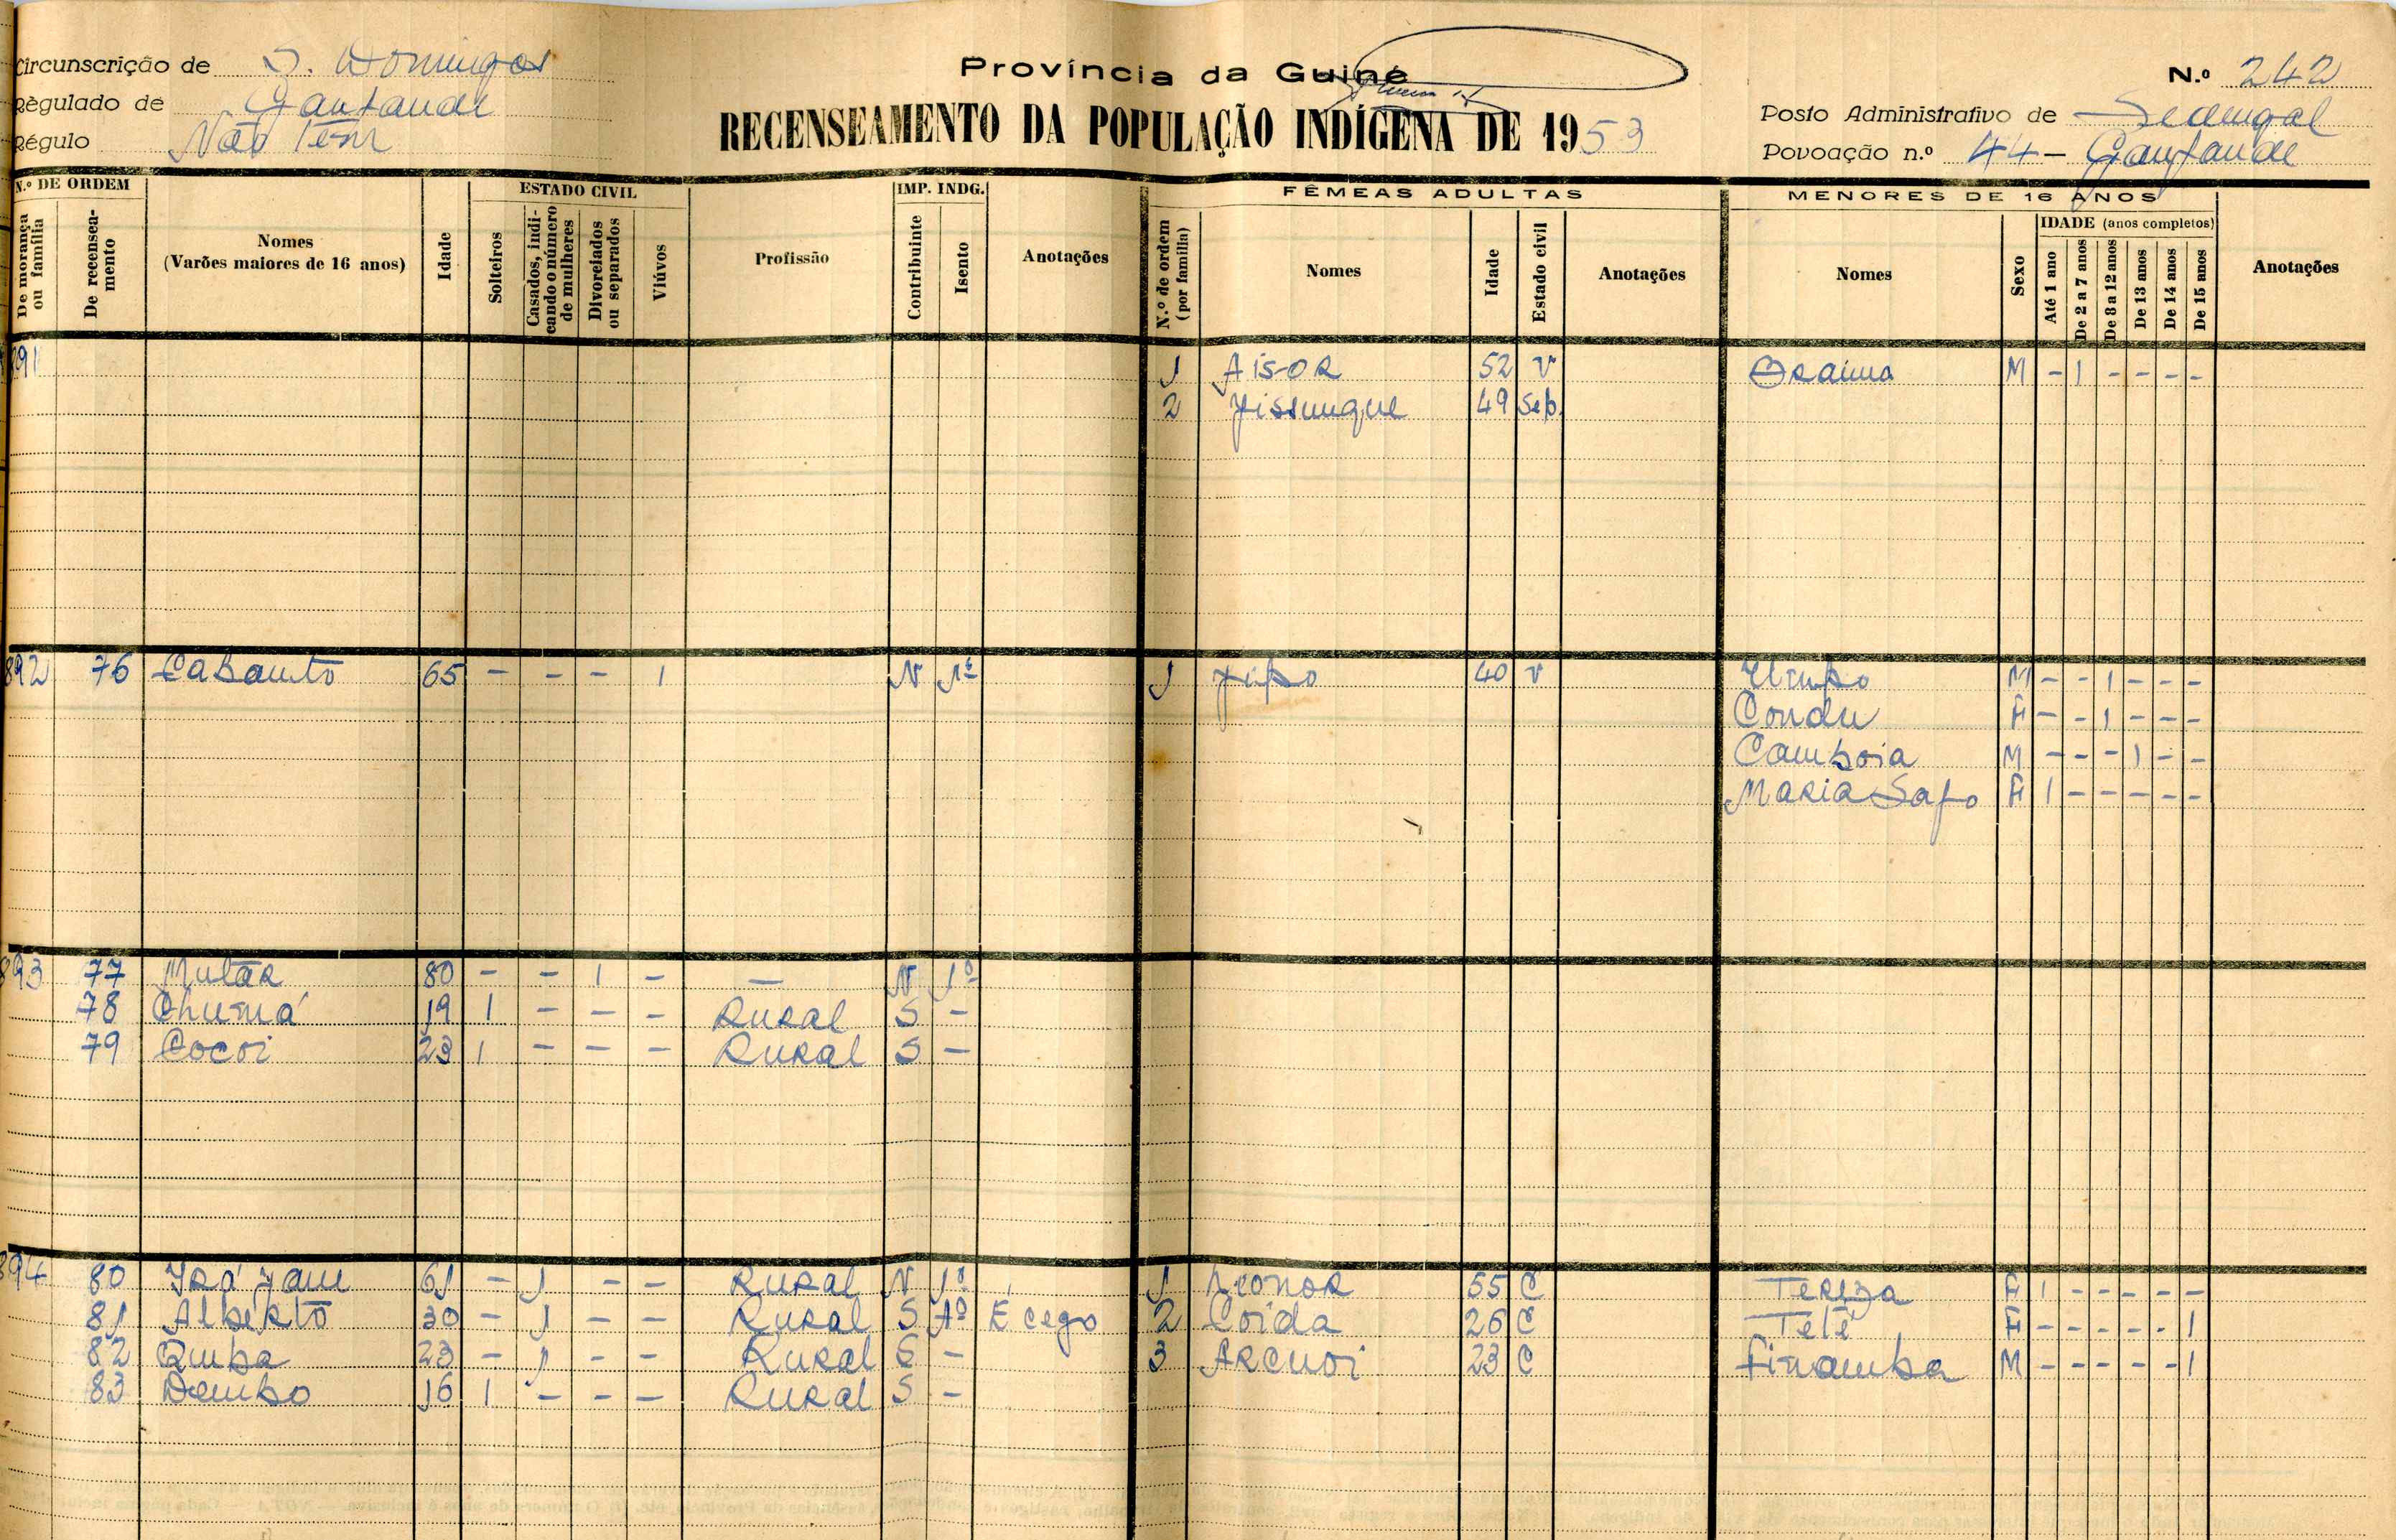 Circunscrição de S. Domingos
Régulado de
Régulo Não Tem
Província da Guiné
RECENSEAMENTO DA POPULAÇÃO INDÍGENA DE 1953
N.º 242
Posto Administrativo de Sedengal
Povoação n.º 44 –
N.º DE ORDEM
De morança ou família
De recenseamento
Nomes
(Varões maiores de 16 anos)
Idade
ESTADO CIVIL
Solteiros
Casados, indicando o número de mulheres
Divorciados ou separados
Viúvos
Profissão
IMP. INDG.
Contribuinte
Isento
Anotações
FÊMEAS ADULTAS
N.º de ordem (por família)
Nomes
Idade
Estado civil
Anotações
MENORES DE 16 ANOS
Nomes
Sexo
IDADE (anos completos)
Até 1 ano
De 2 a 7 anos
De 8 a 12 anos
De 13 anos
De 14 anos
De 15 anos
Anotações
891 1 Aisor 52 V Braima M – 1 – – – –
2 49 Sep.
892 76 Cabamto 65 – – – 1 N 1º 1 40 V M – – 1 – – –
Condu F – – 1 – – –
Camboia M – – – 1 – –
Maria Safo F 1 – – – – –
893 77 Mutar 80 – – 1 – – N 1º
78 Chumá 19 1 – – – Rural S –
79 Cocoi 23 1 – – – Rural S –
894 80 61 – 1 – – Rural N 1º 1 Leonor 55 C Tereza F 1 – – – – –
81 Alberto 30 – 1 – – Rural S É cego 2 Coida 26 C Teté F – – – – – 1
82 Quiba 23 – 1 – – Rural S – 3 Arcuoi 23 C Finamba M – – – – – 1
83 Dembo 16 1 – – – Rural S –